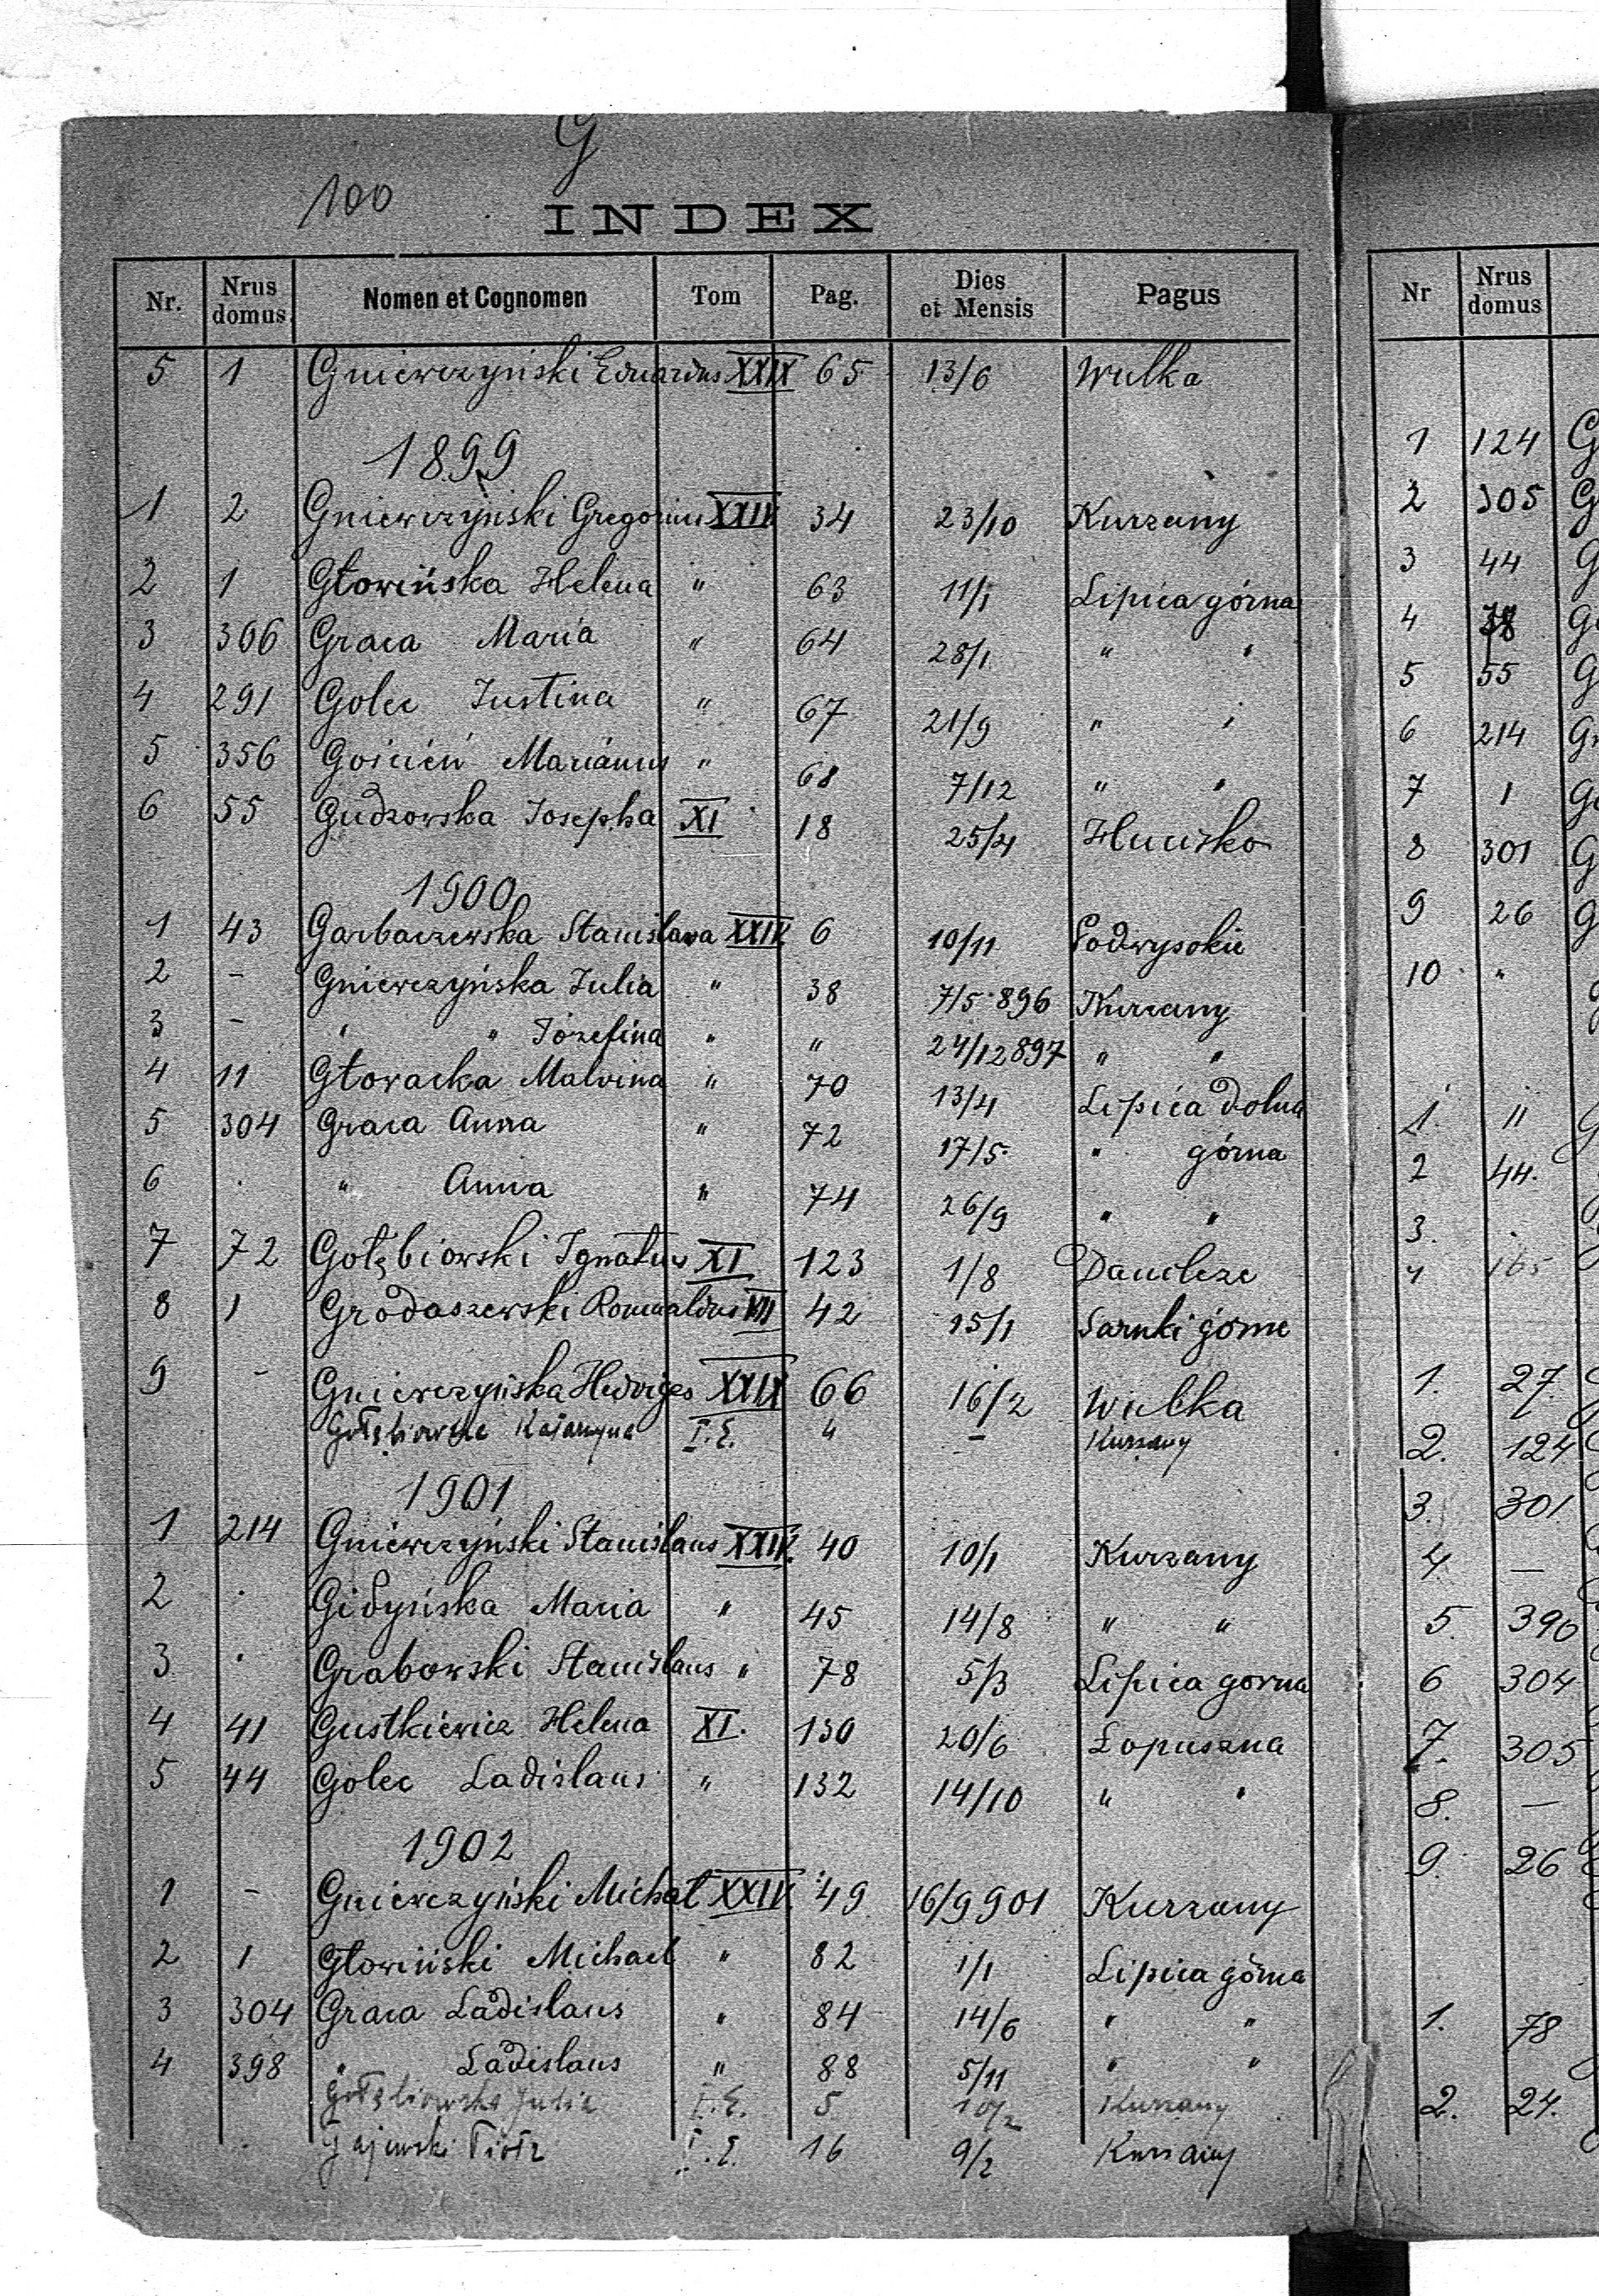 G
100
INDEX
Nr. Nrus domus. Nomen et Cognomen Tom Pag. Dies et Mensis Pagus
5 1 Gniewczyński Eduardus XXIX 65 13/6 Wulka
1899
1 2 Gniewczyński Gregorius XXIX 34 23/10 Kurzany
2 1 Głowińska Helena " 63 11/1 Lipica górna
3 306 Graca Maria " 64 28/1 " "
4 291 Golec Justina " 67 21/9 " "
5 356 Goścień Marianus " 68 7/12 " "
6 55 Gudzowska Josepha XI 18 25/4 Hucisko
1900
1 43 Garbaczewska Stanislava XXIX 6 10/11 Podwysokie
2 - Gniewczyńska Julia " 38 7/5 896 Kurzany
3 - " " Józefina " " 24/12 897 " "
4 11 Głowacka Malvina " 70 13/4 Lipica dolna
5 304 Graca Anna " 72 17/5 " górna
6 . " Anna " 74 26/9 " "
7 72 Gołębiowski Ignatius XI 123 1/8 Danilcze
8 1 Grodaszewski Romualdus VII 42 15/1 Sarnki górne
9 - Gniewczyńska Hedviges XXIX 66 16/2 Wulka
Gołębiowska Katarzyna I.E. 4 - Kurzany
1901
1 214 Gniewczyński Stanislaus XXIX. 40 10/1 Kurzany
2 . Gidyńska Maria " 45 14/8 " "
3 . Grabowski Stanislaus " 78 5/3 Lipica gorna
4 41 Gustkiewicz Helena XI. 130 20/6 Lopuszna
5 44 Golec Ladislaus " 132 14/10 " "
1902
1 - Gniewczyński Michał XXIX. 49 16/9 901 Kurzany
2 1 Głowiński Michael " 82 1/1 Lipica górna
3 304 Graca Ladislaus " 84 14/6 " "
4 398 " Ladislaus " 88 5/11 " "
Gołębiowska Julia I.E. 5 10/2 Kurzany
Gajewski Piotr I.E. 16 9/2 Kurzany
Nr Nrus domus
1 124 G
2 305 G
3 44 G
4 38 G
5 55 G
6 214 G
7 1 G
8 301 G
9 26 G
10 "
1. 11 G
2 44.
3. .
4 165
1. 27. G
2. 124
3. 301
4. —
5. 390
6 304
7. 305
8. —
9. 26
1. 78
2. 24.